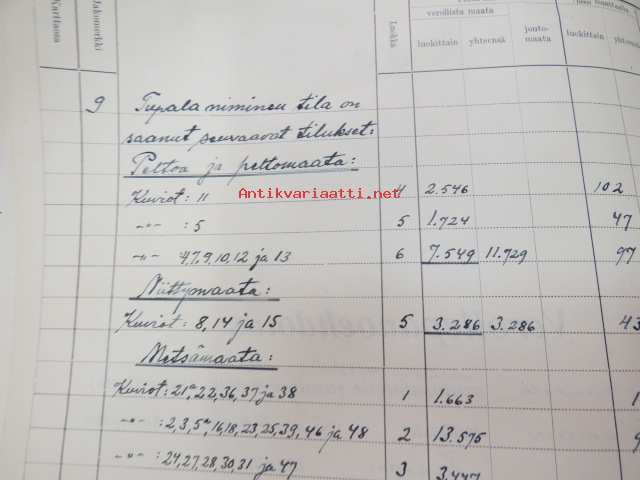 Kartassa
Jakomerkki
Luokka
verollista maata
luokittain yhteensä
jouto-
maata
luokittain
9 Tupala niminen tila on
saanut seuraavat tilukset:
Peltoa ja peltomaata:
Kuviot: 11 4 2.546 102
-"- : 5 5 1.724 47
-"- 4,7,9,10,12 ja 13 6 7.549 11.729 97
Niittymaata:
Kuviot: 8, 14 ja 15 5 3.286 3.286 43
Metsämaata:
Kuviot: 21a, 22, 36, 37 ja 38 1 1.663 1
-"- : 2,3,5a,16,18,23,25,39,46 ja 48 2 13.575 9
-"- : 24,27,28,30,31 ja 47 3 3.447
Antikvariaatti.net